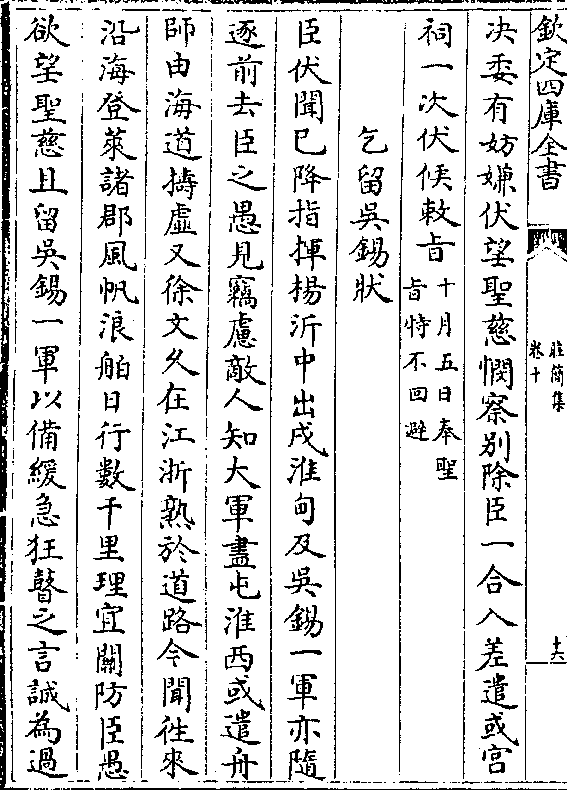 欽定四庫全書
莊簡集
卷十
十六
决委有妨嫌伏望聖慈憫察别除臣一合入差遣或宫
祠一次伏候敕㫖
十月五日奉聖
㫖特不回避
乞留吳錫狀
臣伏聞已降指揮楊沂中出戍淮甸及吳錫一軍亦隨
逐前去臣之愚見竊慮敵人知大軍盡屯淮西或遣舟
師由海道擣虛又徐文久在江浙熟於道路今聞往來
沿海登萊諸郡風帆浪舶日行數千里理宜關防臣愚
欲望聖慈且留吳錫一軍以備緩急狂瞽之言誠為過